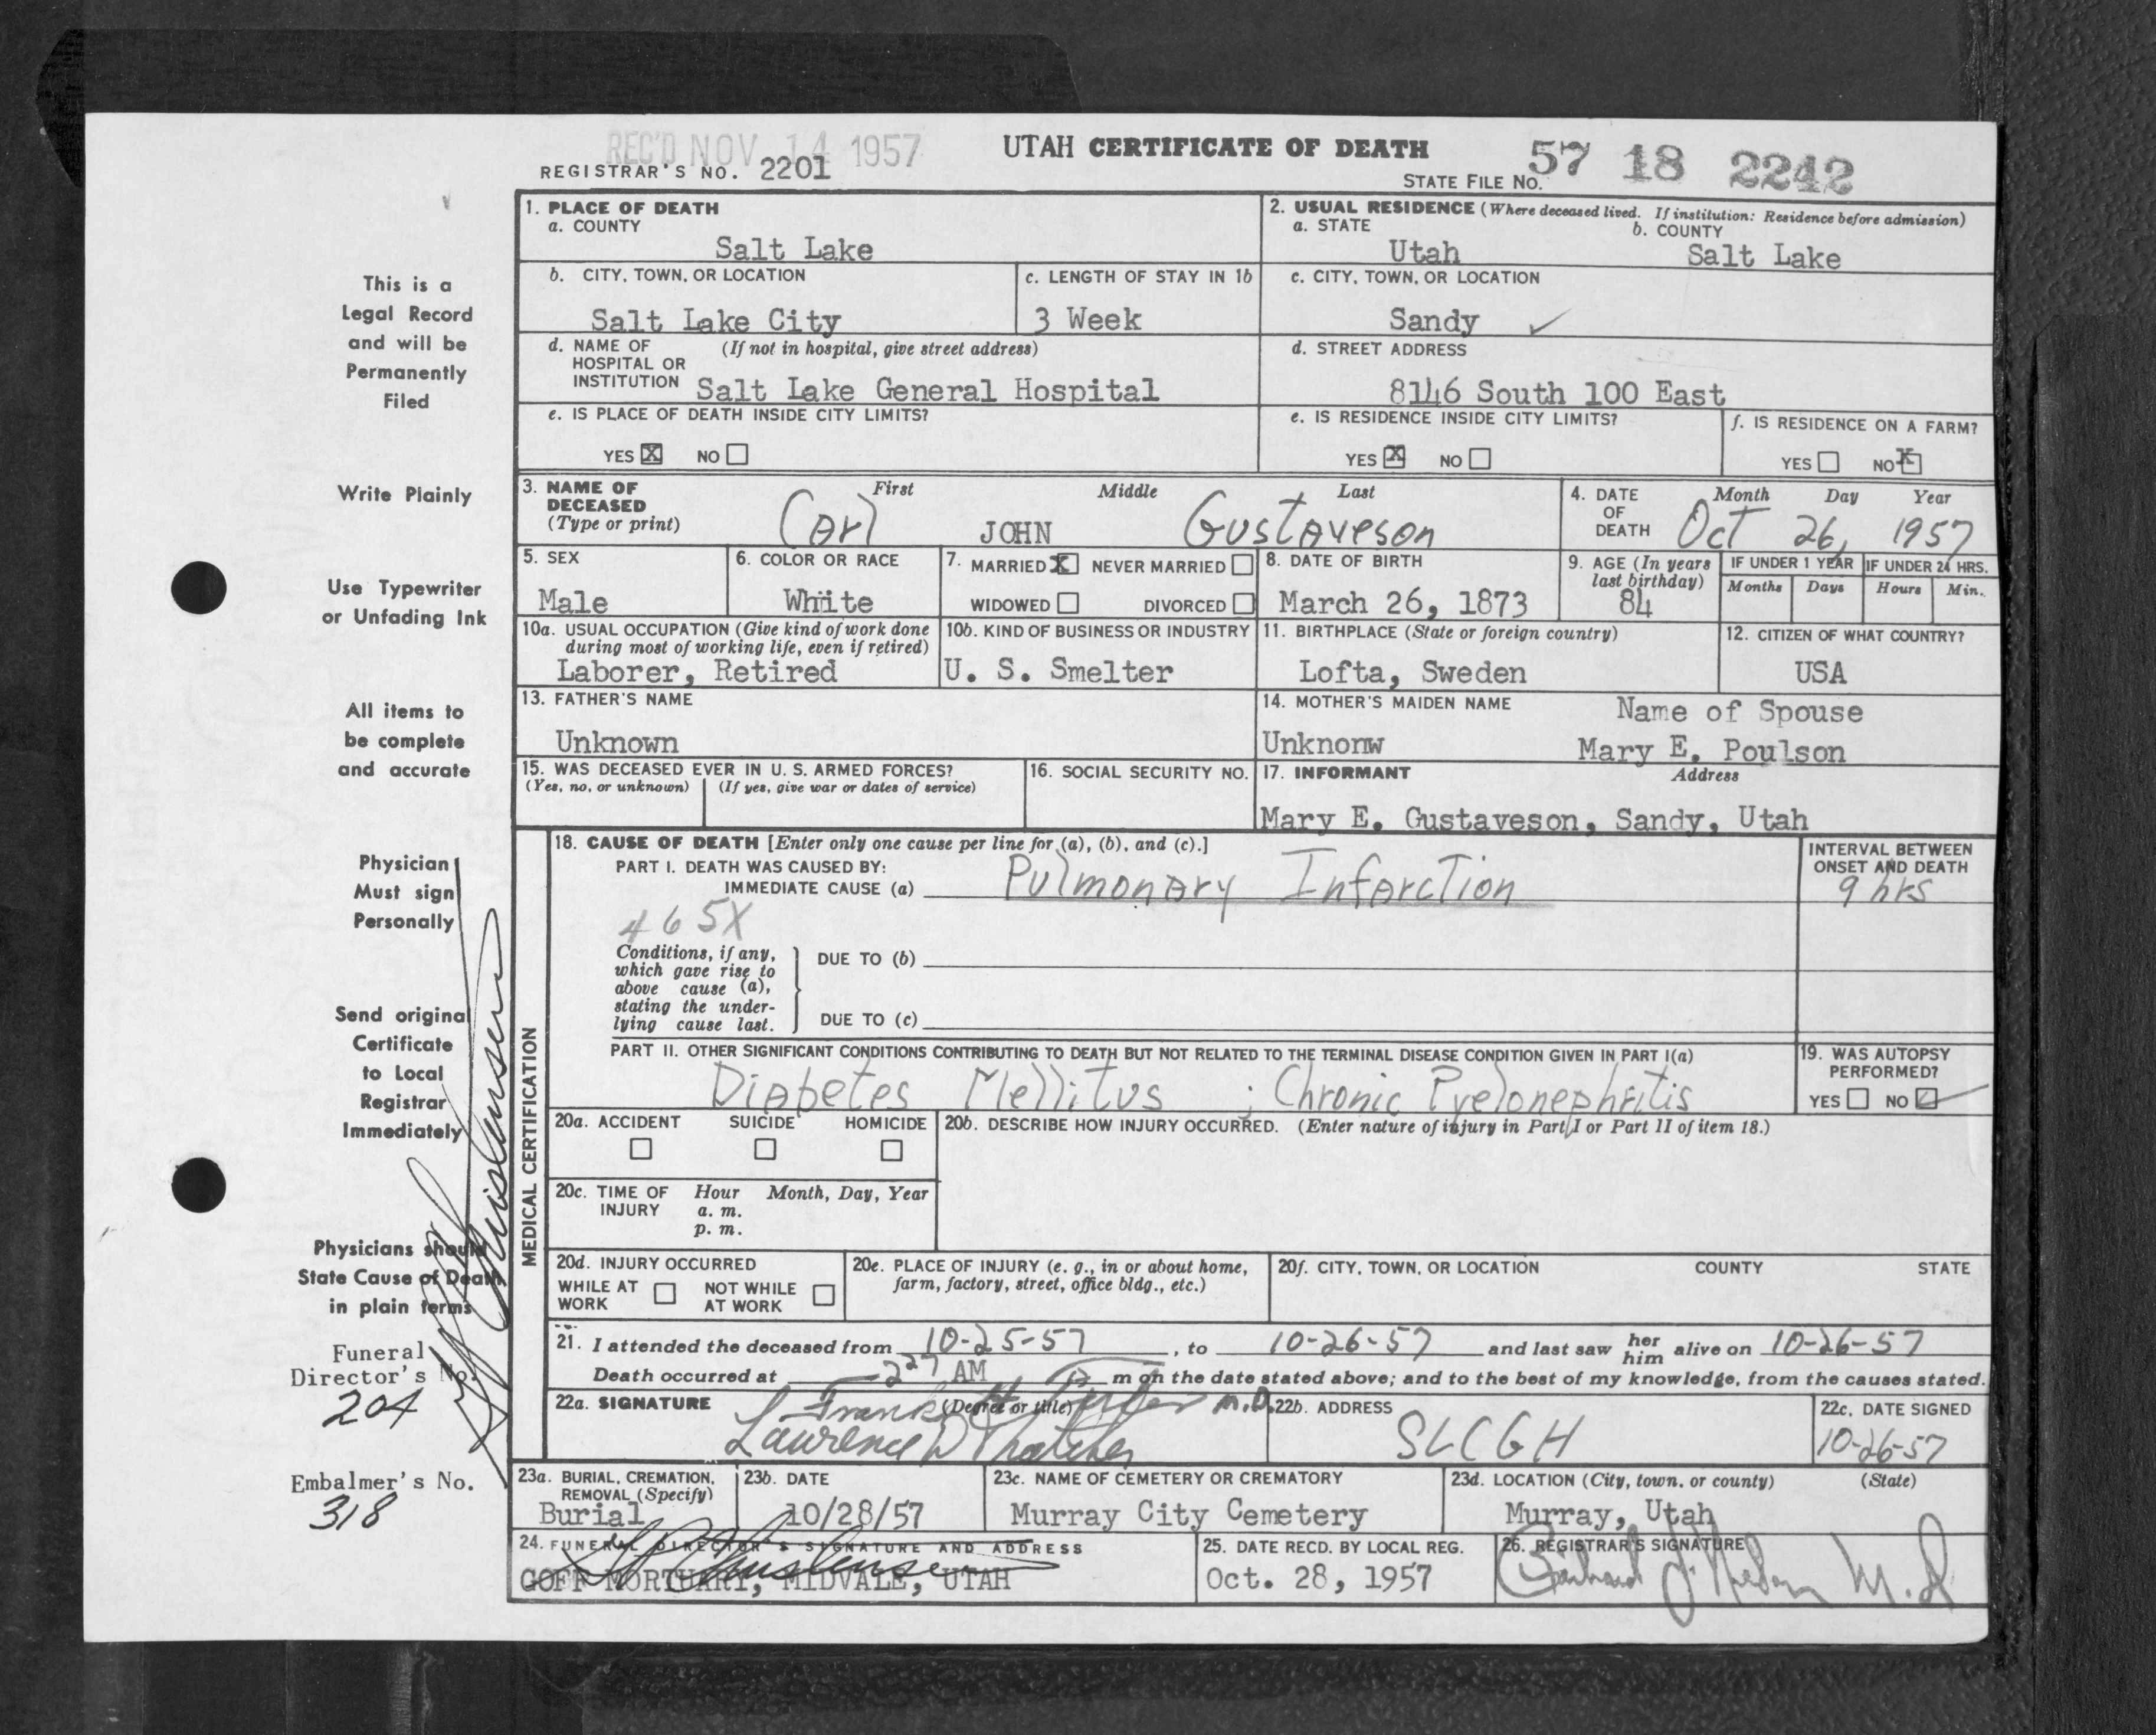 REC'D NOV 14 1957
UTAH CERTIFICATE OF DEATH
REGISTRAR'S NO. 2201
STATE FILE NO. 57 18 2242
1. PLACE OF DEATH
a. COUNTY
Salt Lake
2. USUAL RESIDENCE (Where deceased lived. If institution: Residence before admission)
a. STATE b. COUNTY
Utah Salt Lake
b. CITY, TOWN, OR LOCATION
Salt Lake City
c. LENGTH OF STAY IN 1b
3 Week
c. CITY, TOWN, OR LOCATION
Sandy
d. NAME OF (If not in hospital, give street address)
HOSPITAL OR
INSTITUTION Salt Lake General Hospital
d. STREET ADDRESS
8146 South 100 East
e. IS PLACE OF DEATH INSIDE CITY LIMITS?
YES X NO
e. IS RESIDENCE INSIDE CITY LIMITS?
YES X NO
f. IS RESIDENCE ON A FARM?
YES NO X
3. NAME OF First Middle Last
DECEASED
(Type or print) Carl JOHN Gustaveson
4. DATE Month Day Year
OF
DEATH Oct 26, 1957
5. SEX
Male
6. COLOR OR RACE
White
7. MARRIED X NEVER MARRIED
WIDOWED DIVORCED
8. DATE OF BIRTH
March 26, 1873
9. AGE (In years
last birthday)
84
IF UNDER 1 YEAR
Months Days
IF UNDER 24 HRS.
Hours Min.
10a. USUAL OCCUPATION (Give kind of work done
during most of working life, even if retired)
Laborer, Retired
10b. KIND OF BUSINESS OR INDUSTRY
U. S. Smelter
11. BIRTHPLACE (State or foreign country)
Lofta, Sweden
12. CITIZEN OF WHAT COUNTRY?
USA
13. FATHER'S NAME
Unknown
14. MOTHER'S MAIDEN NAME
Unknonw
Name of Spouse
Mary E. Poulson
15. WAS DECEASED EVER IN U. S. ARMED FORCES?
(Yes, no, or unknown) (If yes, give war or dates of service)
16. SOCIAL SECURITY NO.
17. INFORMANT Address
Mary E. Gustaveson, Sandy, Utah
MEDICAL CERTIFICATION
18. CAUSE OF DEATH [Enter only one cause per line for (a), (b), and (c).]
PART I. DEATH WAS CAUSED BY:
IMMEDIATE CAUSE (a) Pulmonary Infarction
INTERVAL BETWEEN
ONSET AND DEATH
9 hrs
465X
Conditions, if any,
which gave rise to
above cause (a),
stating the under-
lying cause last.
DUE TO (b)
DUE TO (c)
PART II. OTHER SIGNIFICANT CONDITIONS CONTRIBUTING TO DEATH BUT NOT RELATED TO THE TERMINAL DISEASE CONDITION GIVEN IN PART I(a)
Diabetes Mellitus ; Chronic Pyelonephritis
19. WAS AUTOPSY
PERFORMED?
YES NO
20a. ACCIDENT SUICIDE HOMICIDE
20b. DESCRIBE HOW INJURY OCCURRED. (Enter nature of injury in Part I or Part II of item 18.)
20c. TIME OF Hour Month, Day, Year
INJURY a. m.
p. m.
20d. INJURY OCCURRED
WHILE AT NOT WHILE
WORK AT WORK
20e. PLACE OF INJURY (e. g., in or about home,
farm, factory, street, office bldg., etc.)
20f. CITY, TOWN, OR LOCATION COUNTY STATE
21. I attended the deceased from 10-25-57, to 10-26-57 and last saw her him alive on 10-26-57
Death occurred at 2 27 AM m on the date stated above; and to the best of my knowledge, from the causes stated.
22a. SIGNATURE (Degree or title) M.D.
Frank
Laurence D Thatcher
22b. ADDRESS
SLCGH
22c. DATE SIGNED
10-26-57
23a. BURIAL, CREMATION,
REMOVAL (Specify)
Burial
23b. DATE
10/28/57
23c. NAME OF CEMETERY OR CREMATORY
Murray City Cemetery
23d. LOCATION (City, town, or county) (State)
Murray, Utah
24. FUNERAL DIRECTOR'S SIGNATURE AND ADDRESS
GOFF MORTUARY, MIDVALE, UTAH
25. DATE RECD. BY LOCAL REG.
Oct. 28, 1957
26. REGISTRAR'S SIGNATURE
M.D.
This is a
Legal Record
and will be
Permanently
Filed
Write Plainly
Use Typewriter
or Unfading Ink
All items to
be complete
and accurate
Physician
Must sign
Personally
Send original
Certificate
to Local
Registrar
Immediately
Physicians should
State Cause of Death
in plain terms
Funeral
Director's No.
204
Embalmer's No.
318
Christensen